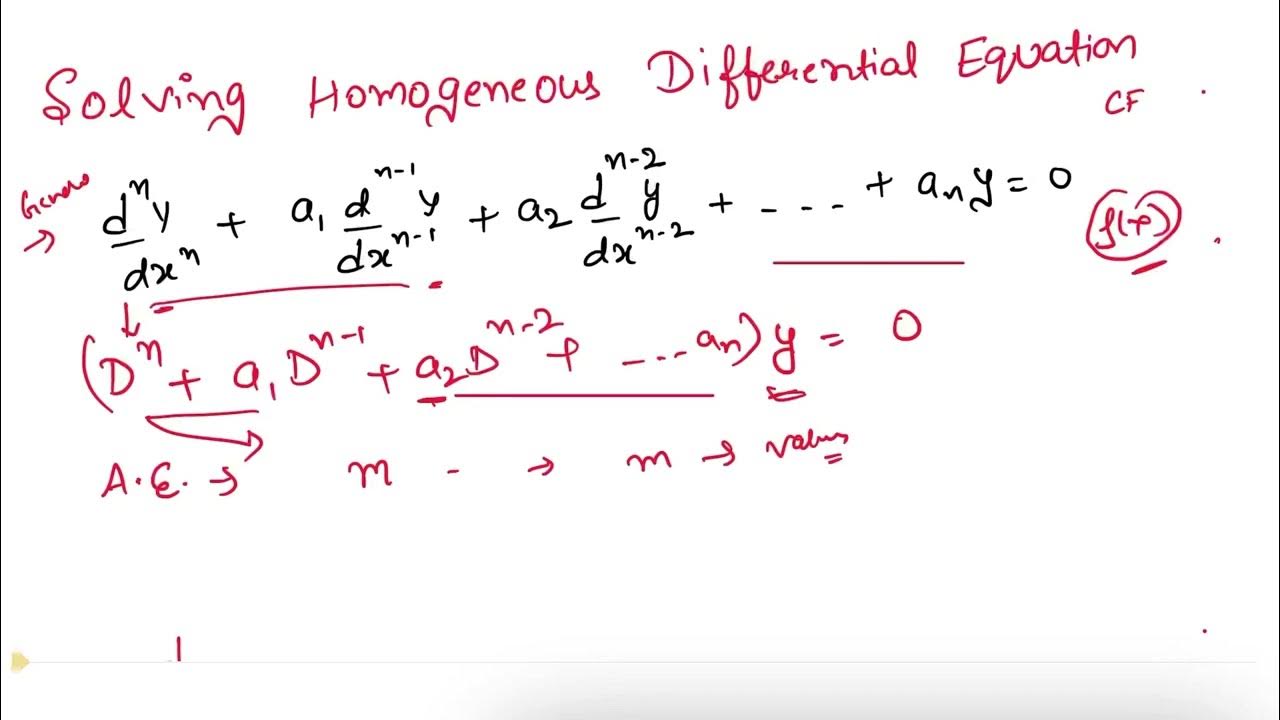 Solving Homogeneous Differential Equation
CF
dⁿy/dxⁿ + a₁ dⁿ⁻¹y/dxⁿ⁻¹ + a₂ dⁿ⁻²y/dxⁿ⁻² + - - - + aₙy = 0
(Dⁿ + a₁Dⁿ⁻¹ + a₂Dⁿ⁻² + ---- aₙ) y = 0
A.E. → m - → m → values